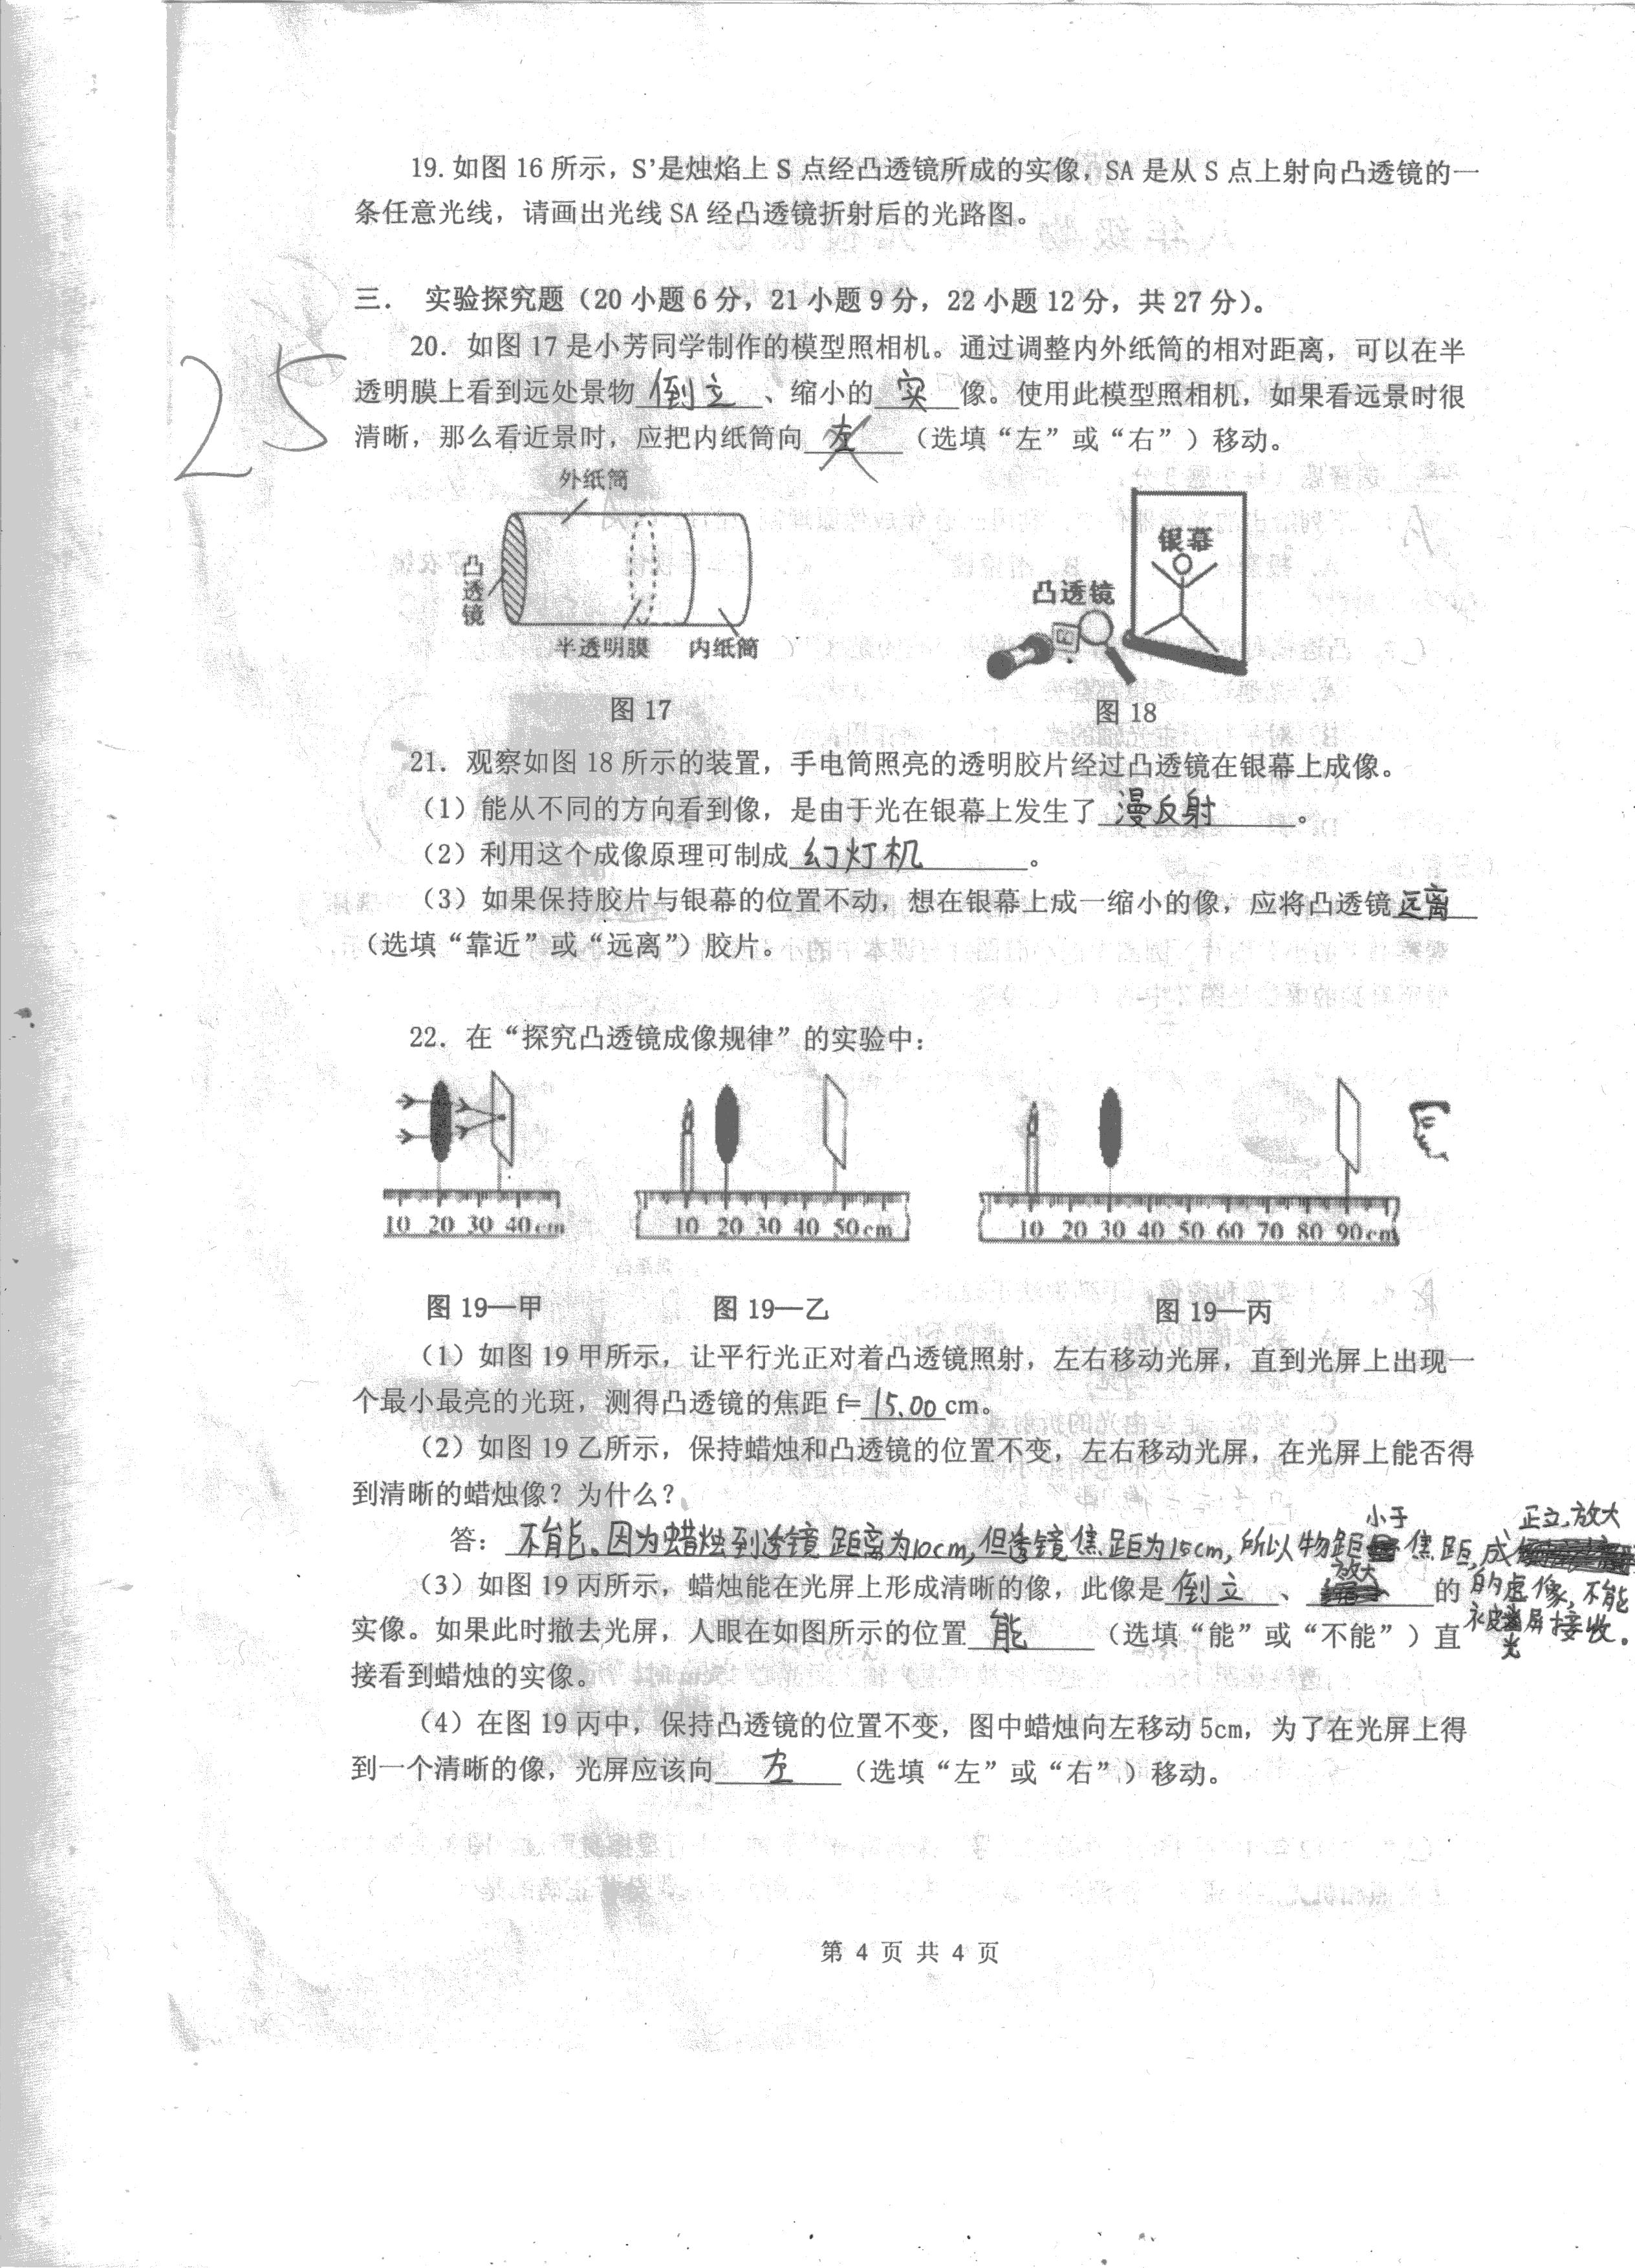 19. 如图 16 所示，S’是烛焰上 S 点经凸透镜所成的实像，SA 是从 S 点上射向凸透镜的一
条任意光线，请画出光线 SA 经凸透镜折射后的光路图。
三． 实验探究题（20 小题 6 分，21 小题 9 分，22 小题 12 分，共 27 分）。
25
20．如图 17 是小芳同学制作的模型照相机。通过调整内外纸筒的相对距离，可以在半
透明膜上看到远处景物 倒立 、缩小的 实 像。使用此模型照相机，如果看远景时很
清晰，那么看近景时，应把内纸筒向 左 （选填“左”或“右”）移动。
外纸筒
凸透镜
半透明膜 内纸筒
图 17
银幕
凸透镜
图 18
21．观察如图 18 所示的装置，手电筒照亮的透明胶片经过凸透镜在银幕上成像。
（1）能从不同的方向看到像，是由于光在银幕上发生了 漫反射 。
（2）利用这个成像原理可制成 幻灯机 。
（3）如果保持胶片与银幕的位置不动，想在银幕上成一缩小的像，应将凸透镜 远离
（选填“靠近”或“远离”）胶片。
22．在“探究凸透镜成像规律”的实验中：
10 20 30 40cm
10 20 30 40 50cm
10 20 30 40 50 60 70 80 90cm
图 19—甲 图 19—乙 图 19—丙
（1）如图 19 甲所示，让平行光正对着凸透镜照射，左右移动光屏，直到光屏上出现一
个最小最亮的光斑，测得凸透镜的焦距 f= 15.00 cm。
（2）如图 19 乙所示，保持蜡烛和凸透镜的位置不变，左右移动光屏，在光屏上能否得
到清晰的蜡烛像？为什么？
答： 不能。因为蜡烛到透镜距离为10cm,但透镜焦距为15cm,所以物距小于焦距,成正立.放大
的虚像,不能
被光屏接收。
（3）如图 19 丙所示，蜡烛能在光屏上形成清晰的像，此像是 倒立 、 放大 的
实像。如果此时撤去光屏，人眼在如图所示的位置 能 （选填“能”或“不能”）直
接看到蜡烛的实像。
（4）在图 19 丙中，保持凸透镜的位置不变，图中蜡烛向左移动 5cm，为了在光屏上得
到一个清晰的像，光屏应该向 左 （选填“左”或“右”）移动。
第 4 页 共 4 页